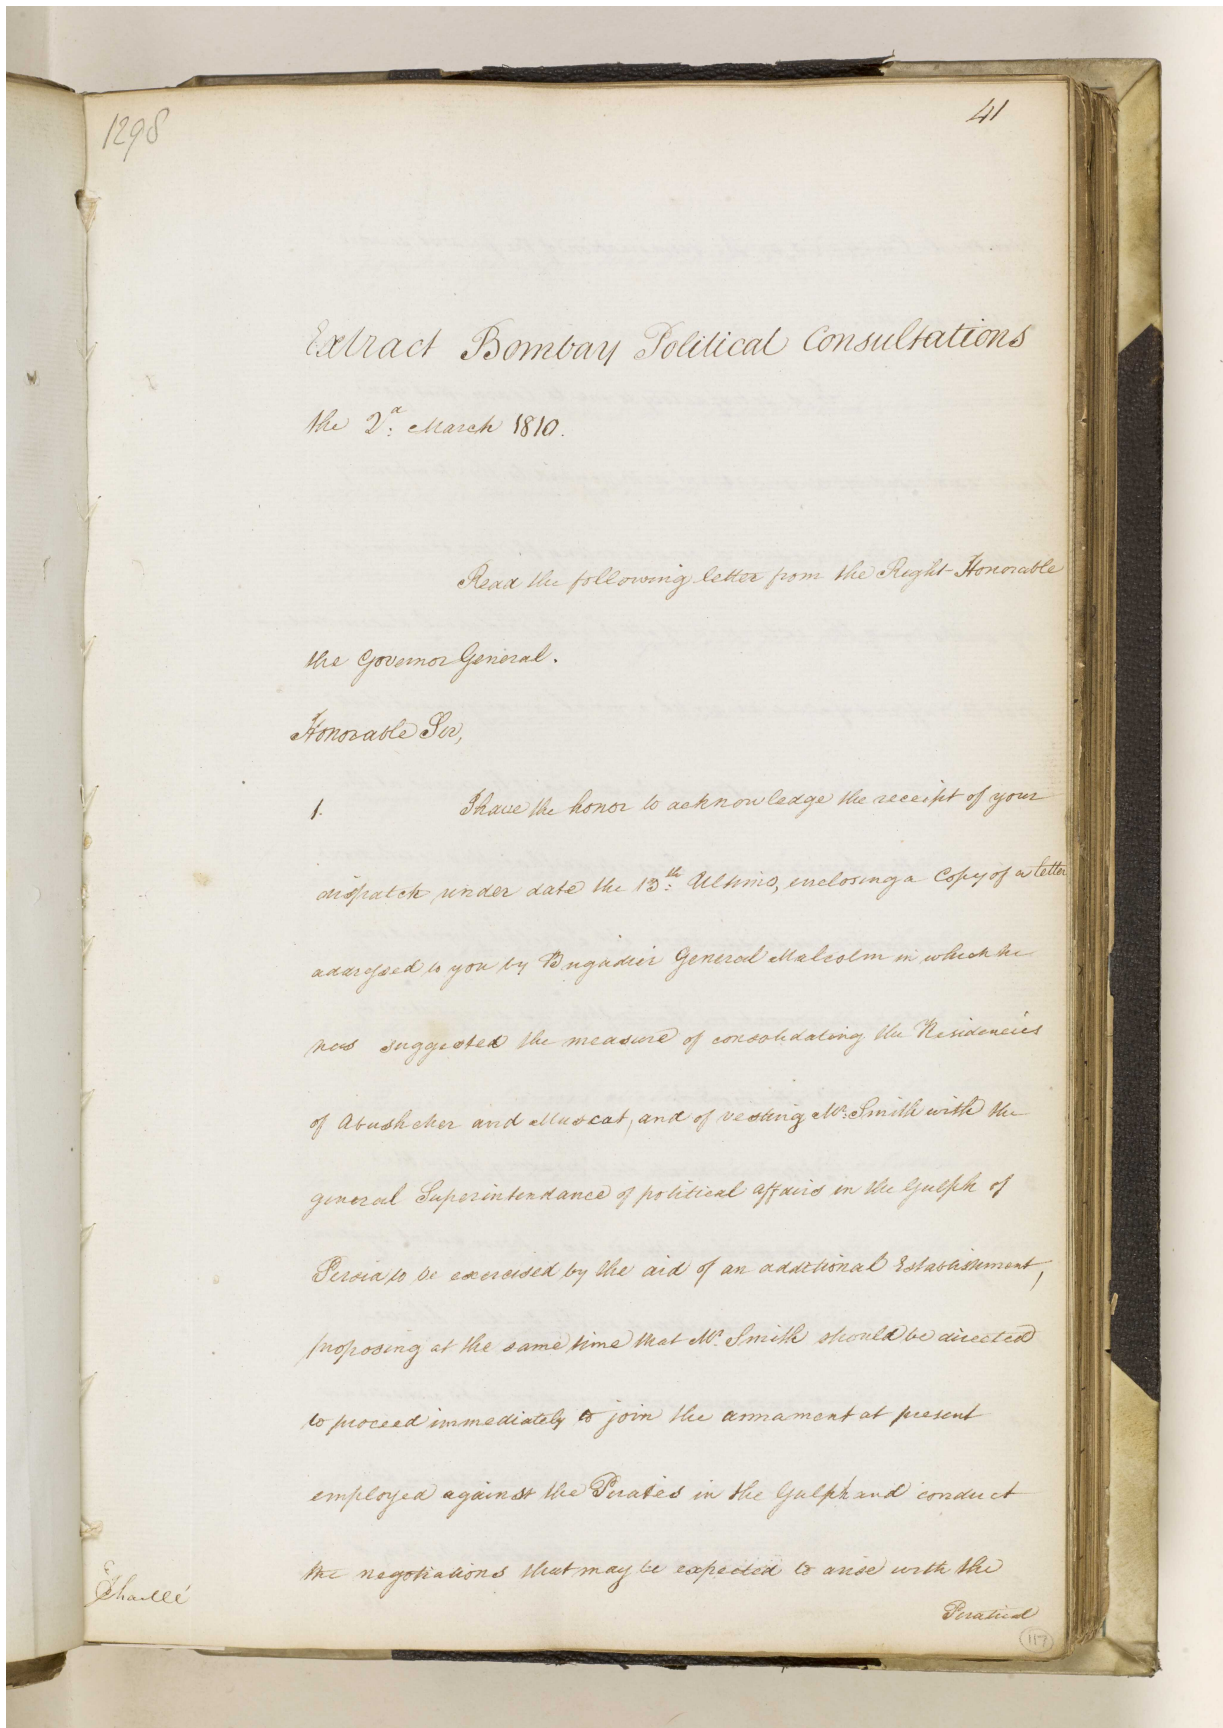 1298
41
Extract Bombay Political Consultations
the 2.d March 1810.
Read the following letter from the Right Honorable
the Governor General.
Honorable Sir,
1. I have the honor to acknowledge the receipt of your
dispatch under date the 13.th Ultimo, enclosing a Copy of a letter
addressed to you by Brigadier General Malcolm in which he
has suggested the measure of consolidating the Residencies
of Abusheher and Muscat, and of vesting Mr. Smith with the
general Superintendance of political affairs in the Gulph of
Persia to be exercised by the aid of an additional Establishment,
proposing at the same time that Mr. Smith should be directed
to proceed immediately to join the armament at present
employed against the Pirates in the Gulph and conduct
the negotiations that may be expected to arise with the
Piratical
117